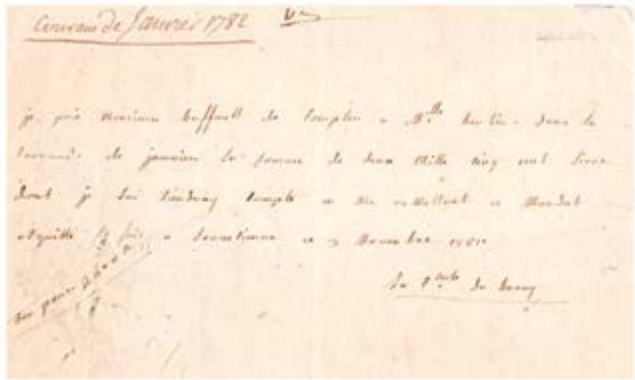 Courant de Janvier 1782
je prie monsieur Buffault de compter a Mlle Bertin dans le
courant de janvier la somme de deux mille cinq cent livres
dont je lui tiendray compte en me remettant ce mandat
acquitté fait a ce 3 novembre 1781
bon pour
La Ctesse du Barry